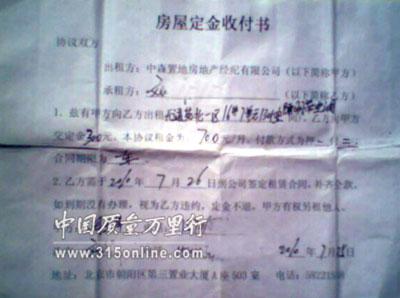 房屋定金收付书
协议双方
出租方：中森置地房地产经纪有限公司（以下简称甲方）
承租方：（以下简称乙方）
1、兹有甲方向乙方出租 一区16 ，乙方向甲方
交定金300元。本协议租金为：700元/月，付款方式为押一
合同期限为一年
2、乙方需于2010年7月26日到公司签定租赁合同，补齐全款，
如到期没有办理，视为乙方违约，定金不退，甲方有权另租他人。
中国质量万里行
www.315online.com
2010年7月25日
地址：北京市朝阳区第三置业大厦A座503室 电话：